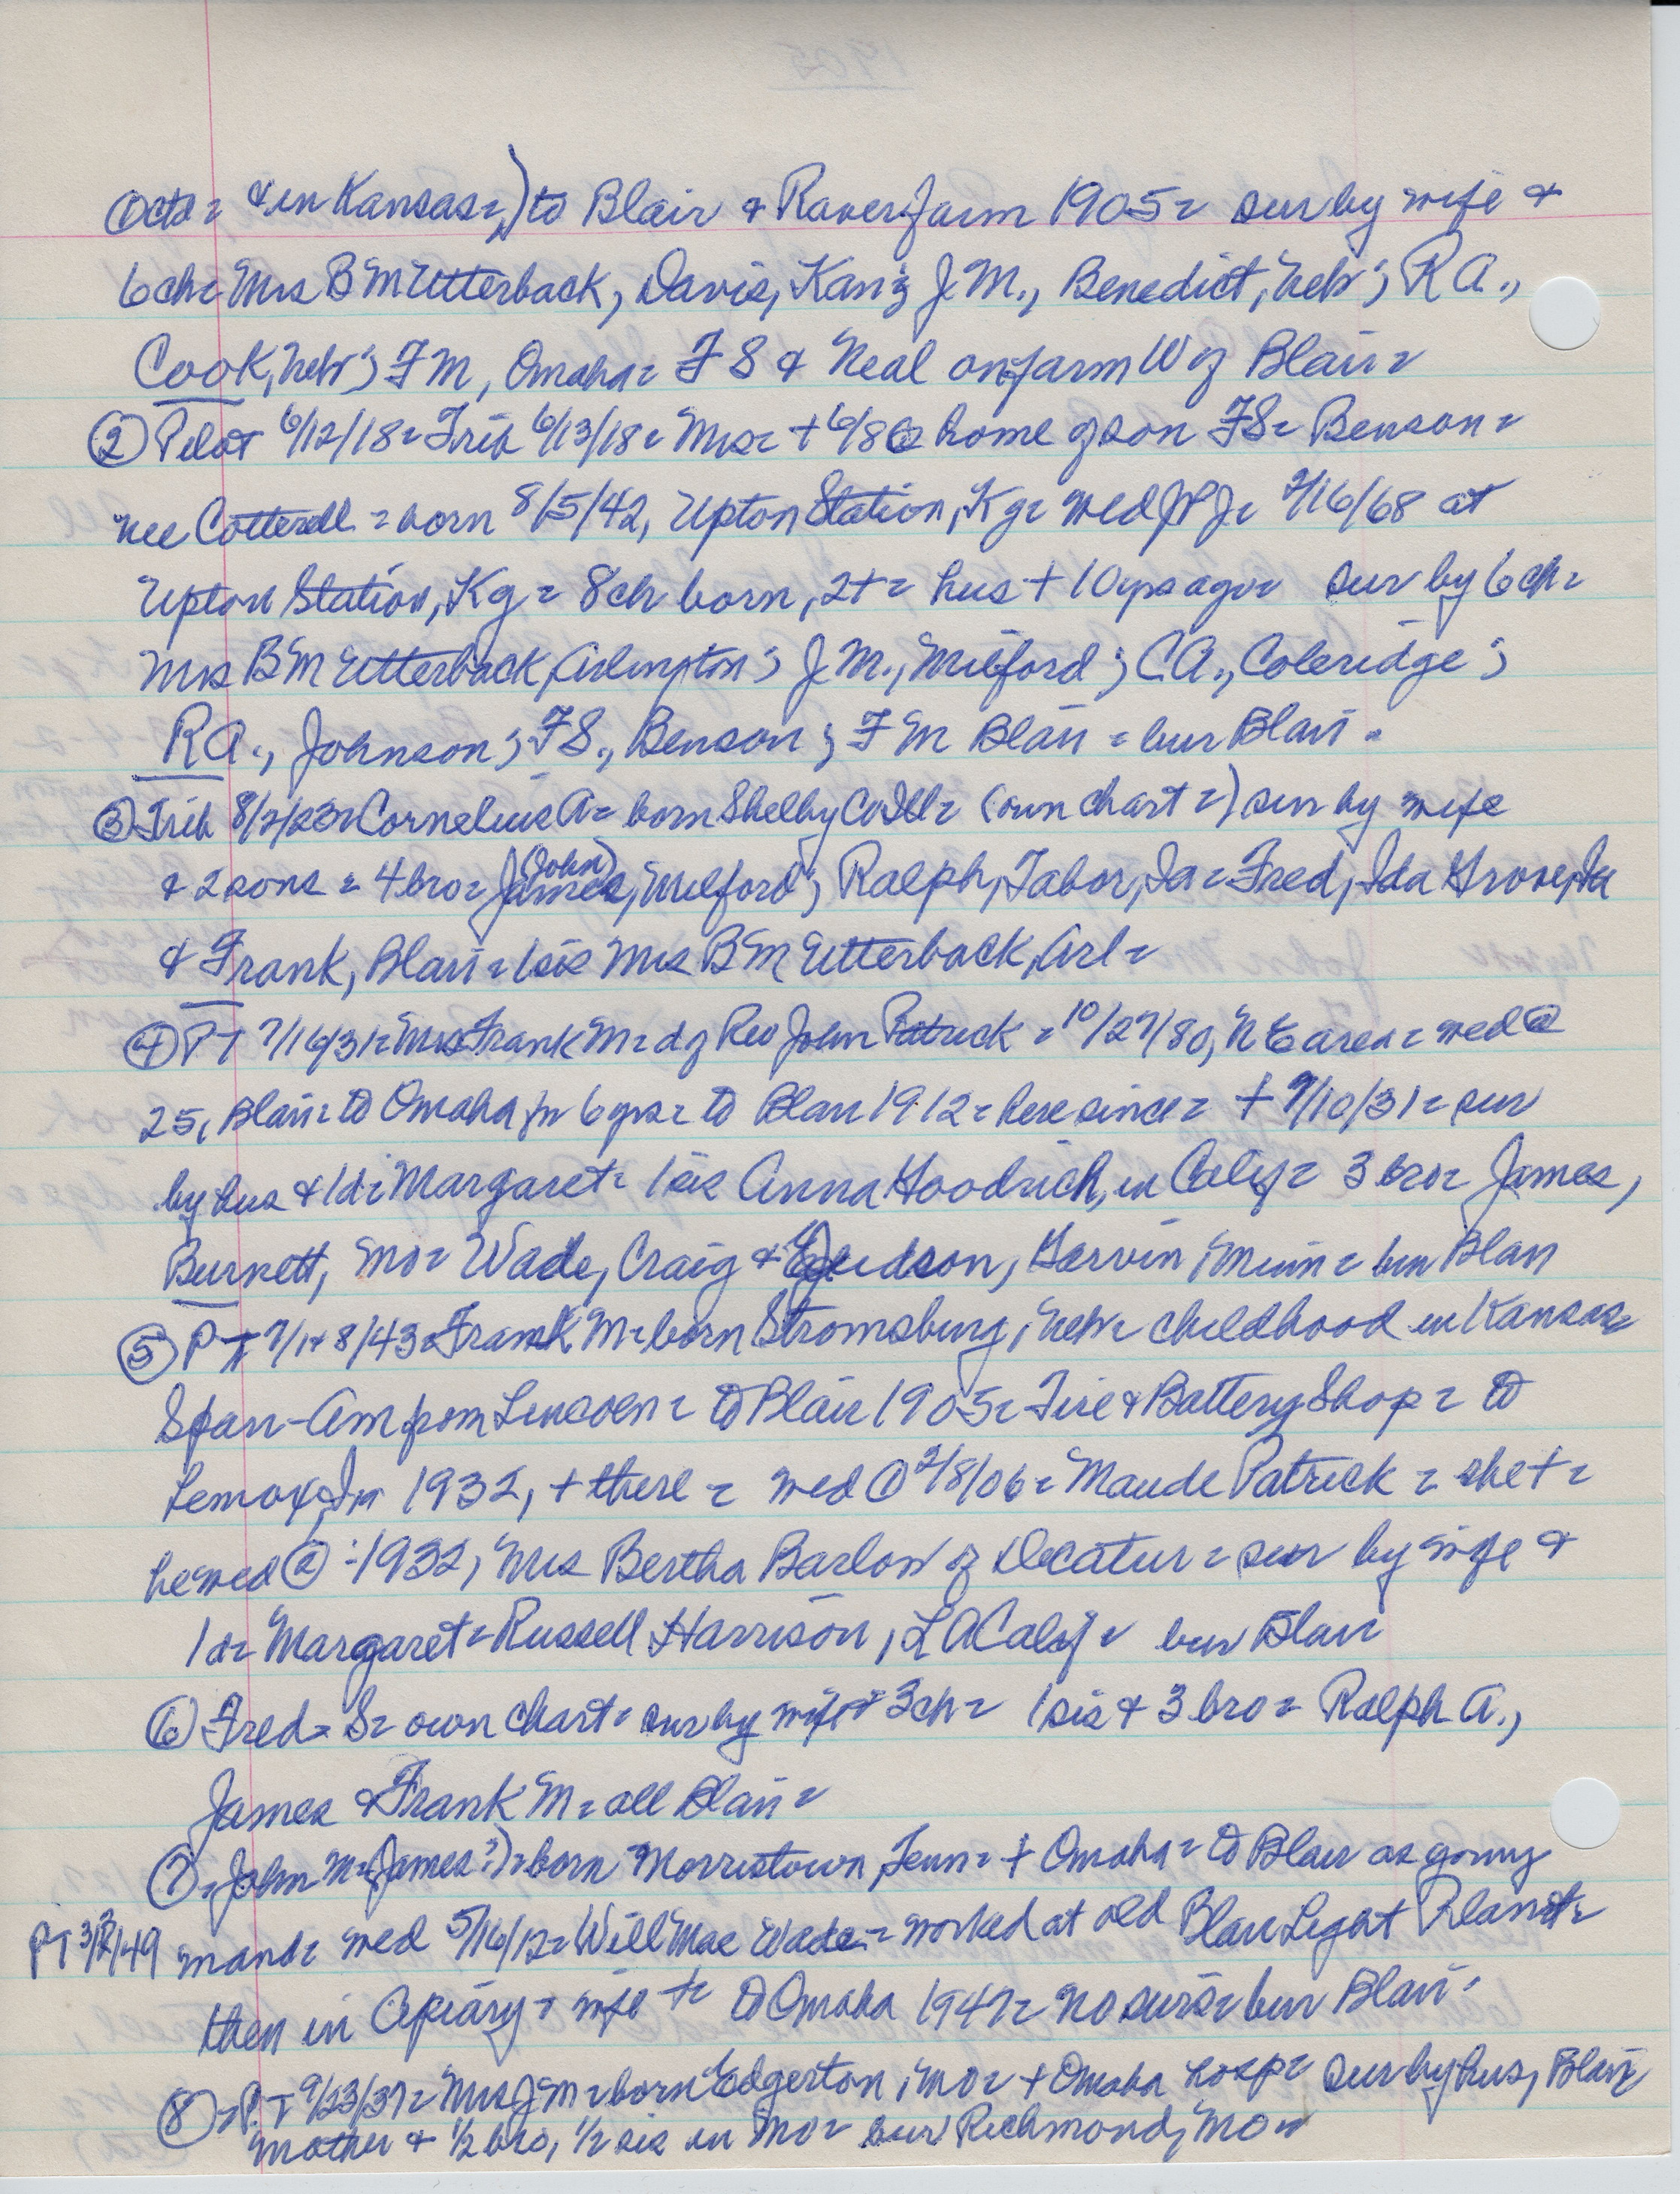 ① cts = & in Kansas =) to Blair & Raver farm 1905 = sur by wife &
6 ch = Mrs B M Utterback, Davis, Kan; J. M., Benedict, Neb; R A.,
Cook, Neb; F M, Omaha = F S & Neal on farm W of Blair =
② Pilot 6/12/18 = Trib 6/13/18 = Mrs = + 6/8 @ home of son FS = Benson =
nee Cotterell = born 8/5/42, Upton Station, Ky = wed JPJ = 2/16/68 at
Upton Station, Ky = 8 ch born, 2+ = hus + 10 yrs ago = sur by 6 ch =
Mrs B M Utterback, Arlington; J M., Milford; C A., Coleridge;
R A., Johnson; F S., Benson; F M Blair = bur Blair =
③ Trib 8/2/23 = Cornelius A = born Shelby Co Ill = (own chart =) sur by wife
& 2 sons = 4 bro = James (John), Milford; Ralph, Tabor, Ia = Fred, Ida Grove, Ia
& Frank, Blair = 1 sis Mrs B M Utterback, Arl =
④ PT 7/16/31 = Mrs Frank M = d of Rev John Patrick = 10/27/80, N E area = wed @
25, Blair = to Omaha for 6 yrs = to Blair 1912 = here since = + 7/10/31 = sur
by hus & 1 d = Margaret = 1 sis Anna Goodrich, in Calif = 3 bro = James,
Burnett, Mo = Wade, Craig & Judson, Garvin, Minn = bur Blair
⑤ PT 7/ 8/43 = Frank M = born Stromsburg, Neb = childhood in Kansas =
Span-Am from Lincoln = to Blair 1905 = Tire & Battery Shop = to
Lenox, Ia 1932, + there = wed ① 2/8/06 = Maude Patrick = she + =
he wed ② - 1932, Mrs Bertha Barlow of Decatur = sur by wife &
1 d = Margaret = Russell Harrison, L A Calif = bur Blair
⑥ Fred = S = own chart = sur by wife & 3 ch = 1 sis & 3 bro = Ralph A.,
James & Frank M = all Blair =
⑦ = John M = (James?) = born Morristown, Tenn = + Omaha = to Blair as young
PT 3/ /49 man = wed 5/16/12 = Will Mae Wade = worked at old Blair Light Plant =
then in Apiary = wife + = to Omaha 1947 = no surs = bur Blair =
⑧ = PT 9/23/37 = Mrs J M = born Edgerton, Mo = + Omaha hosp = sur by hus, Blair =
Mother & 1/2 bro, 1/2 sis in Mo = bur Richmond, Mo =